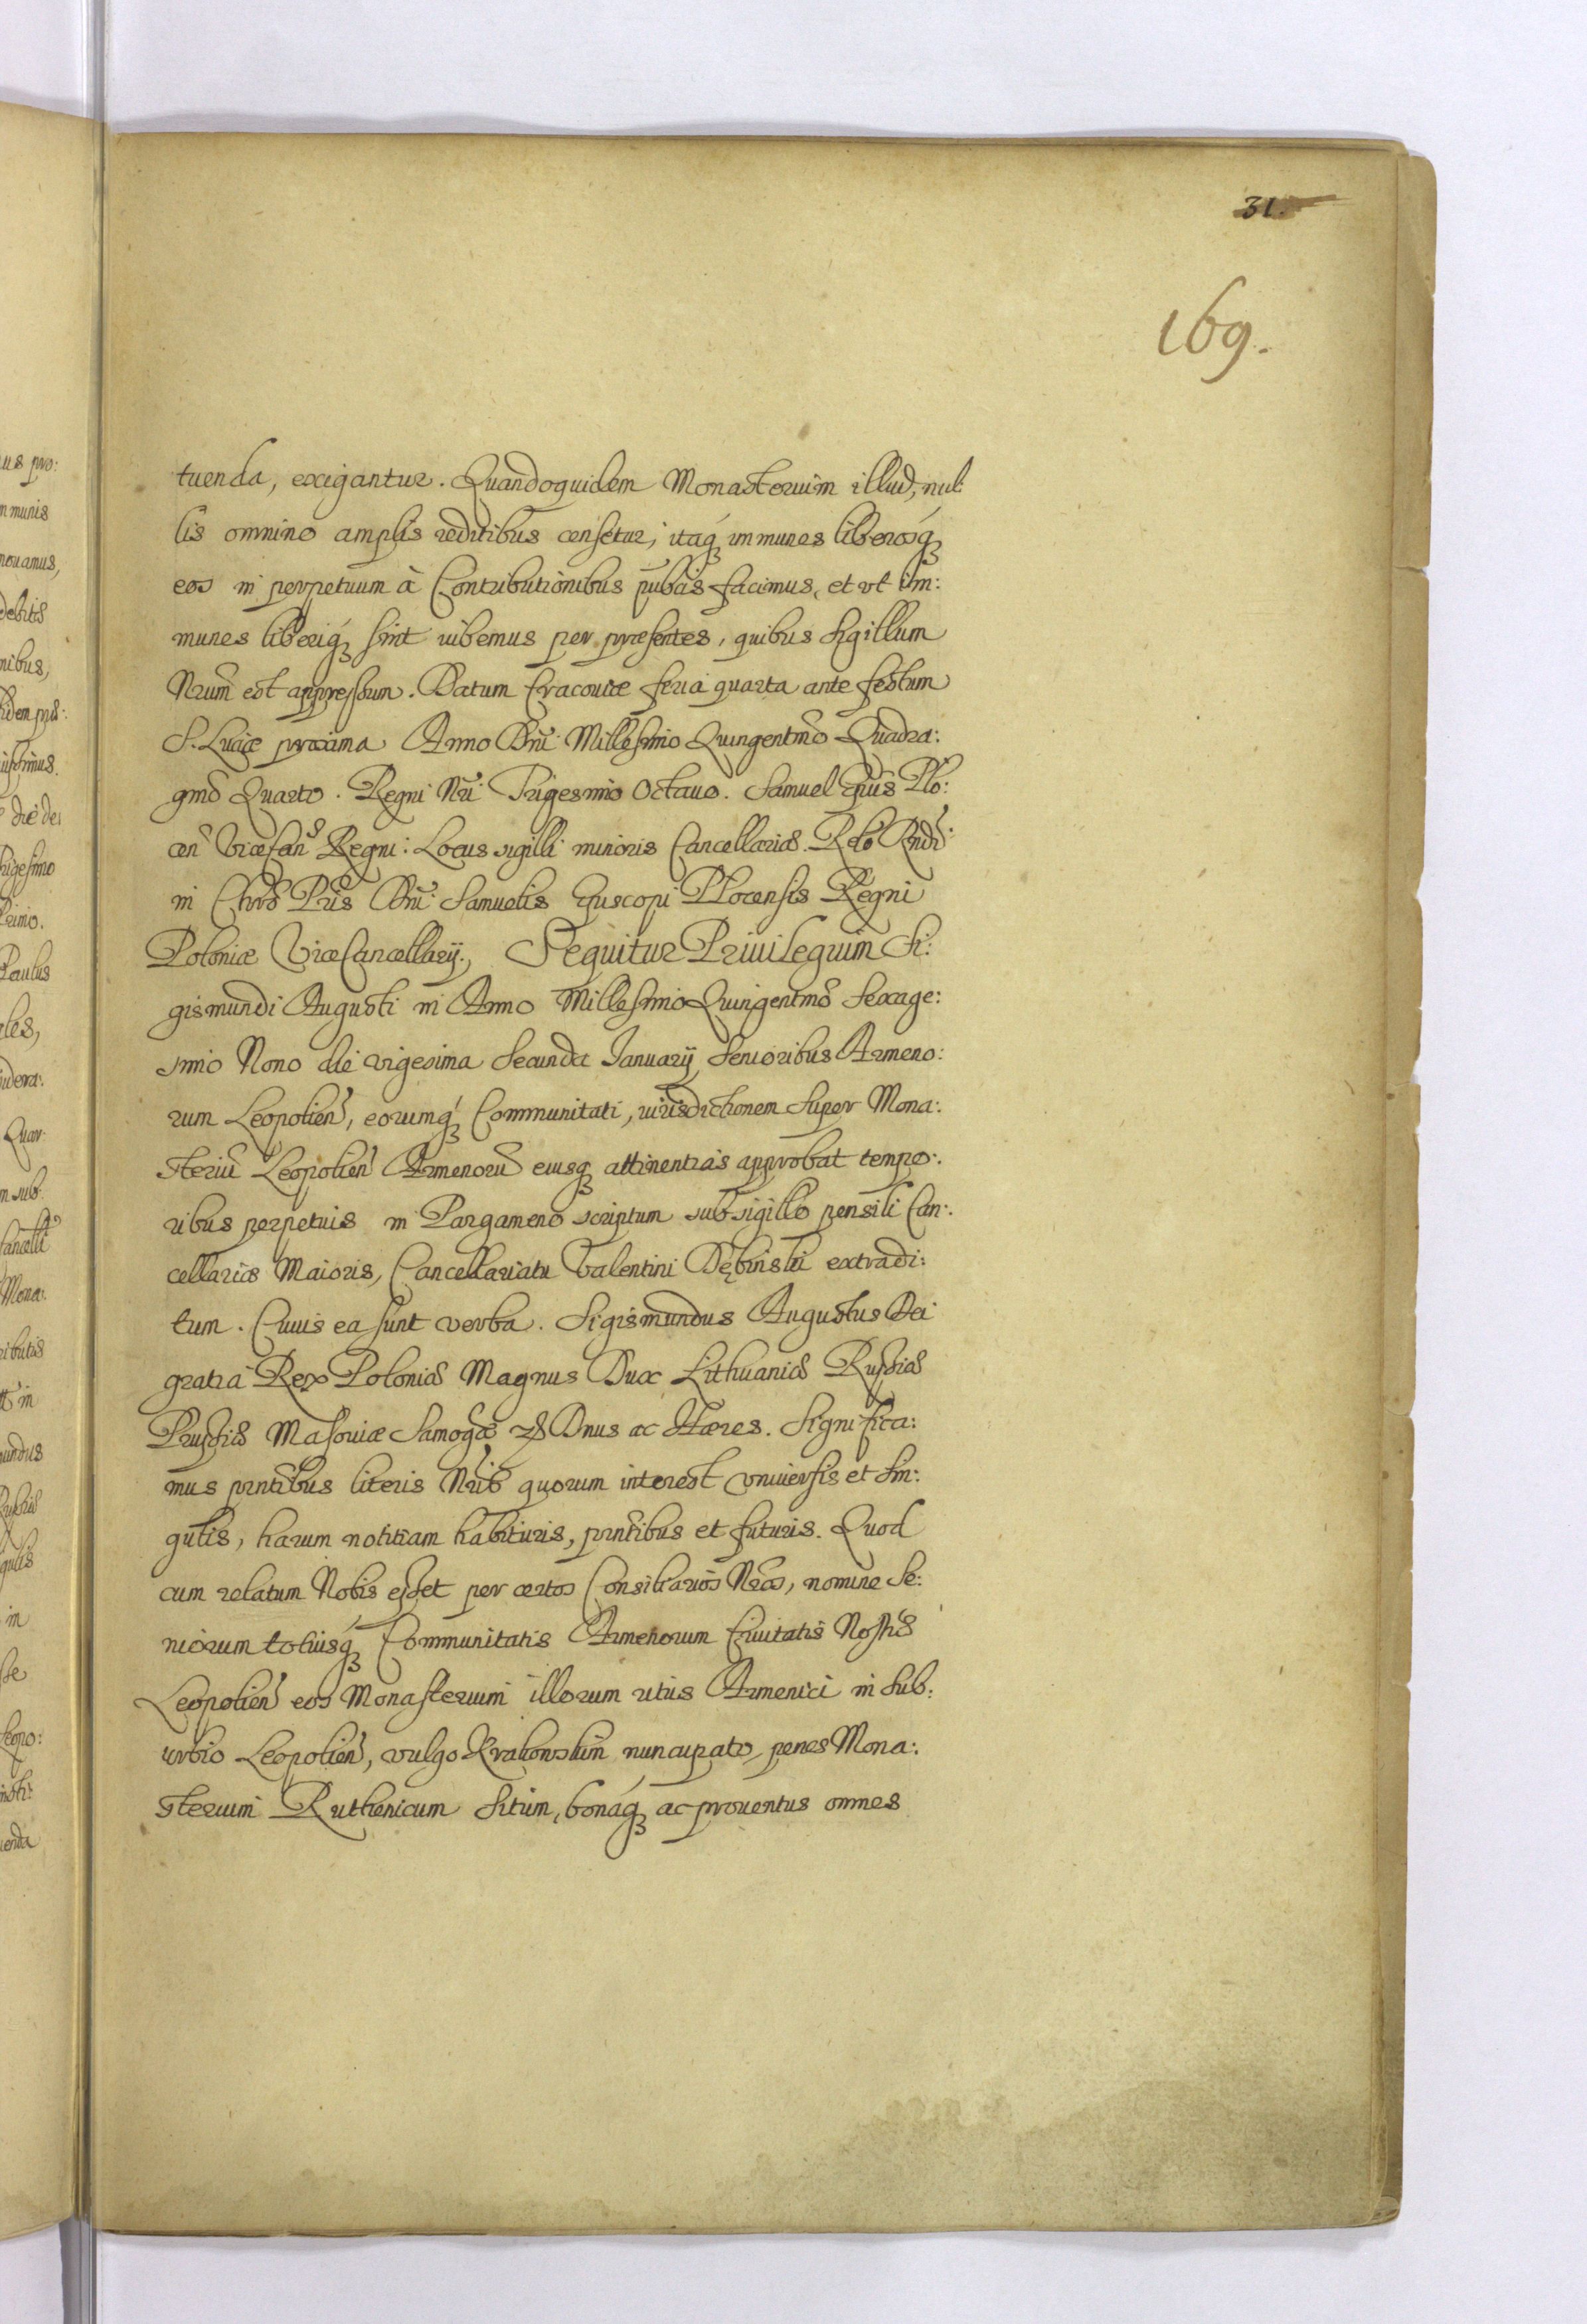 31.
169.
tuenda, exigantur. Quandoquidem Monasterium illud, nul:
lis omnino amplis reditibus censetur, itaq́ immunes liberosq́
eos in perpetuum à Contributionibus pub̃cis facimus, et vt im:
munes liberiq́ sint iubemus per præsentes, quibus Sigillum
Nrũm est appressum. Datum Cracouiæ feria quarta ante festum
S. Luciæ proxima Anno Dnĩ Millesimo Quingentmõ Quadra:
gmõ Quarto. Regni Nrĩ Trigesimo Octauo. Samuel Ep̃us Plo:
cen̄ ViceCan̄ Regni: Locus sigilli minoris Cancellariæ. Relõ Rndĩ
in Chrõ Prĩs Dnĩ Samuelis Episcopi Plocensis Regni
Poloniæ ViceCancellarij., Sequitur Priuilegium Si:
gismundi Augusti in Anno Millesimo Quingentmõ Sexage:
simo Nono die vigesima Secunda Ianuarij Senioribus Armeno:
rum Leopolien̄, eorumq́ Communitati, iurisdictionem Super Mona:
steriũ Leopolien̄ Armenorũ eiusq attinentias approbat tempo:
ribus perpetuis in Pargameno scriptum sub sigillo pensili Can:
cellariæ Maioris, Cancellariatu Valentini Dębinski extradi:
tum. Cuius ea sunt verba. Sigismundus Augustus Dei
gratia Rex Poloniæ Magnus Dux Lithuaniæ Russiæ
Prussiæ Masouiæ Samogæ̃ Dnus ac Hæres. Significa:
mus prntĩbus literis Nrĩs quorum interest vniuersis et sin:
gulis, harum notitiam habituris, prntĩbus et futuris. Quod
cum relatum Nobis esset per certos Consiliarios Nrõs, nomine Se:
niorum totiusq́ Communitatis Armenorum Ciuitatis Nostræ
Leopolien̄ eos Monasterium illorum ritus Armenici in Sub:
urbio Leopolien̄, vulgo Krakowskim nuncupato, penes Mona:
sterium Ruthenicum situm, bonaq́ ac prouentus omnes